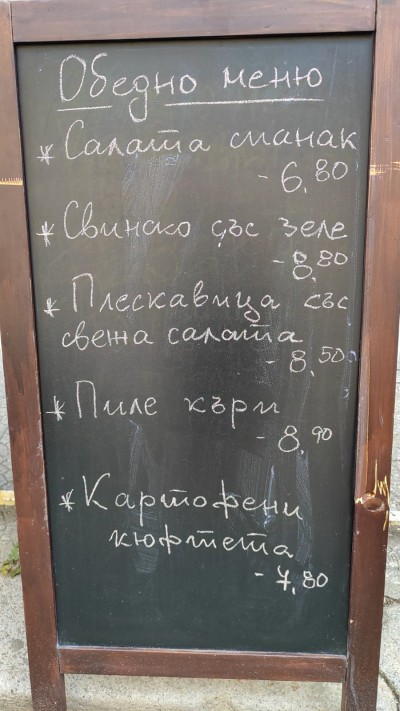 Обедно меню
* Салата спанак
- 6,80
* Свинско със зеле
- 8,80
* Плескавица със
свежа салата
- 8,50
* Пиле къри
- 8,90
* Картофени
кюфтета
- 7,80